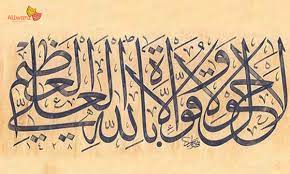 Allwana
لا حول ولا قوة إلا بالله العلي العظيم
١٤٢٨